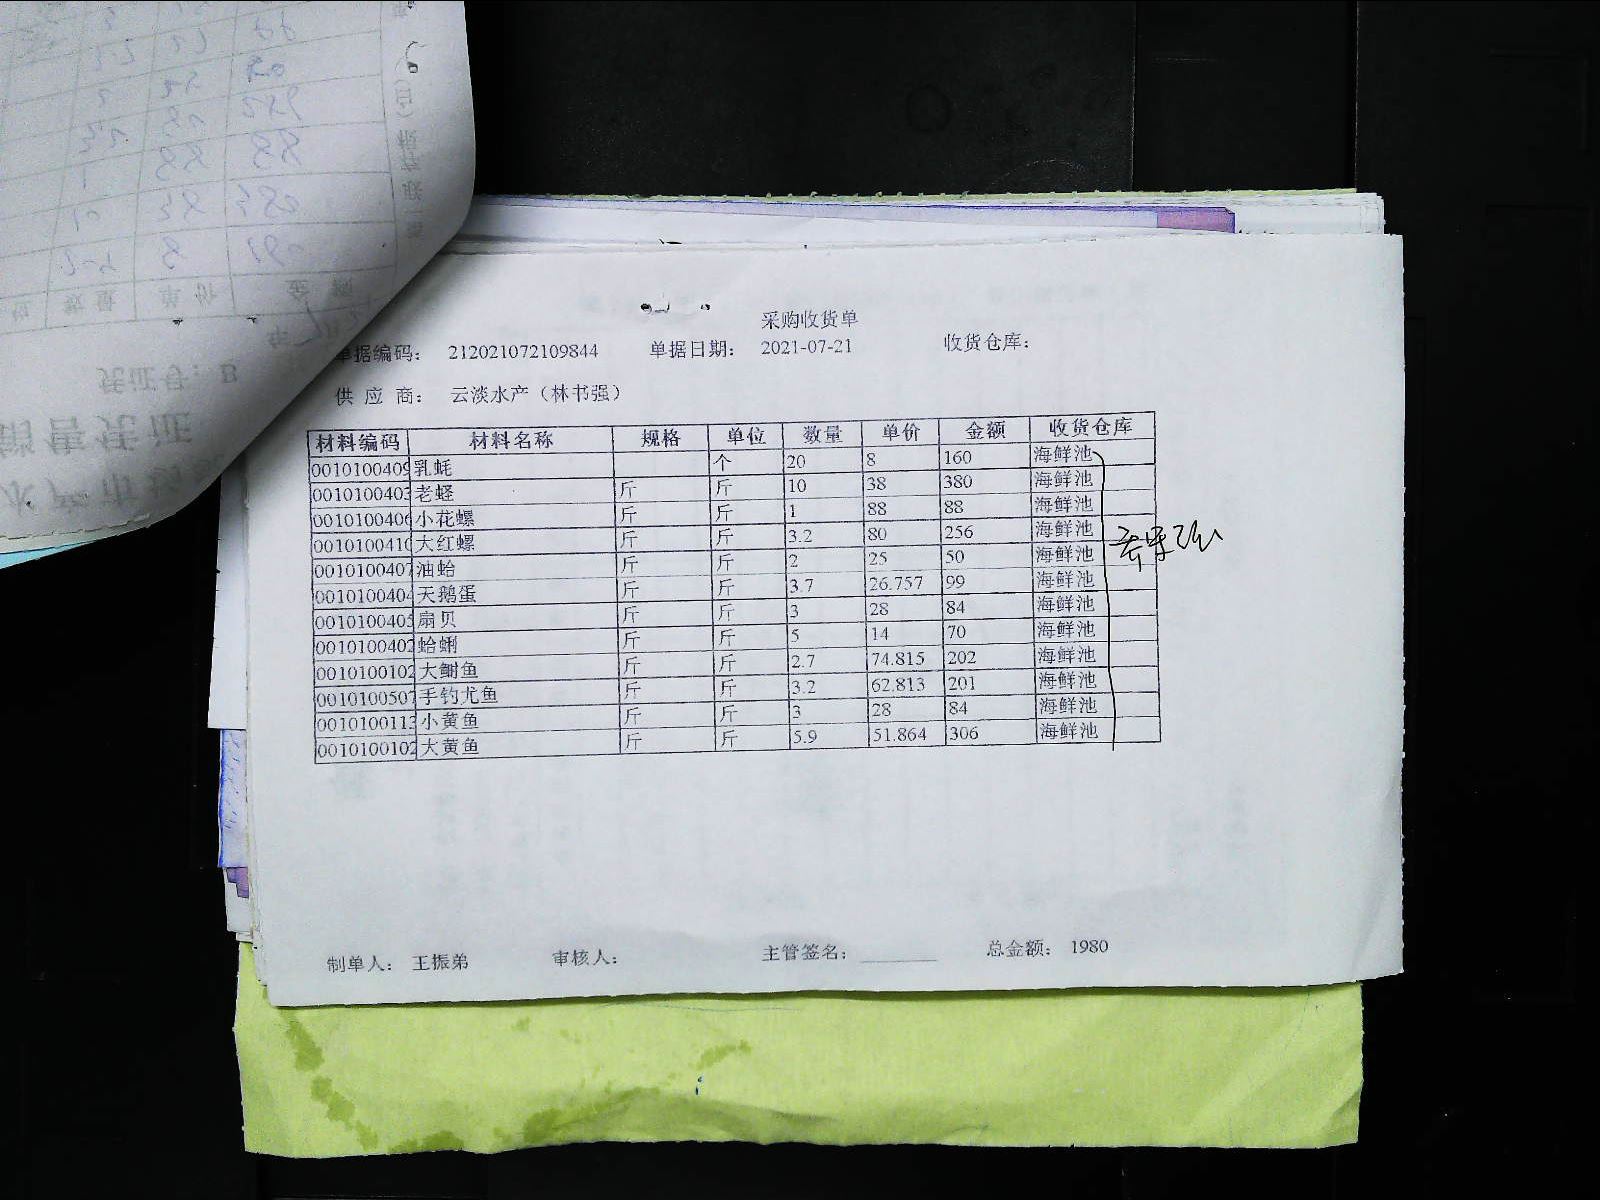 采购收货单
单据编码： 212021072109844 单据日期： 2021-07-21 收货仓库：
供 应 商： 云淡水产（林书强）
材料编码 材料名称 规格 单位 数量 单价 金额 收货仓库
0010100409 乳蚝 个 20 8 160 海鲜池
0010100403 老蛏 斤 斤 10 38 380 海鲜池
0010100406 小花螺 斤 斤 1 88 88 海鲜池
0010100410 大红螺 斤 斤 3.2 80 256 海鲜池
0010100407 油蛤 斤 斤 2 25 50 海鲜池
0010100404 天鹅蛋 斤 斤 3.7 26.757 99 海鲜池
0010100405 扇贝 斤 斤 3 28 84 海鲜池
0010100402 蛤蜊 斤 斤 5 14 70 海鲜池
0010100102 大鲥鱼 斤 斤 2.7 74.815 202 海鲜池
0010100507 手钓尤鱼 斤 斤 3.2 62.813 201 海鲜池
0010100113 小黄鱼 斤 斤 3 28 84 海鲜池
0010100102 大黄鱼 斤 斤 5.9 51.864 306 海鲜池
制单人： 王振弟 审核人： 主管签名： 总金额： 1980